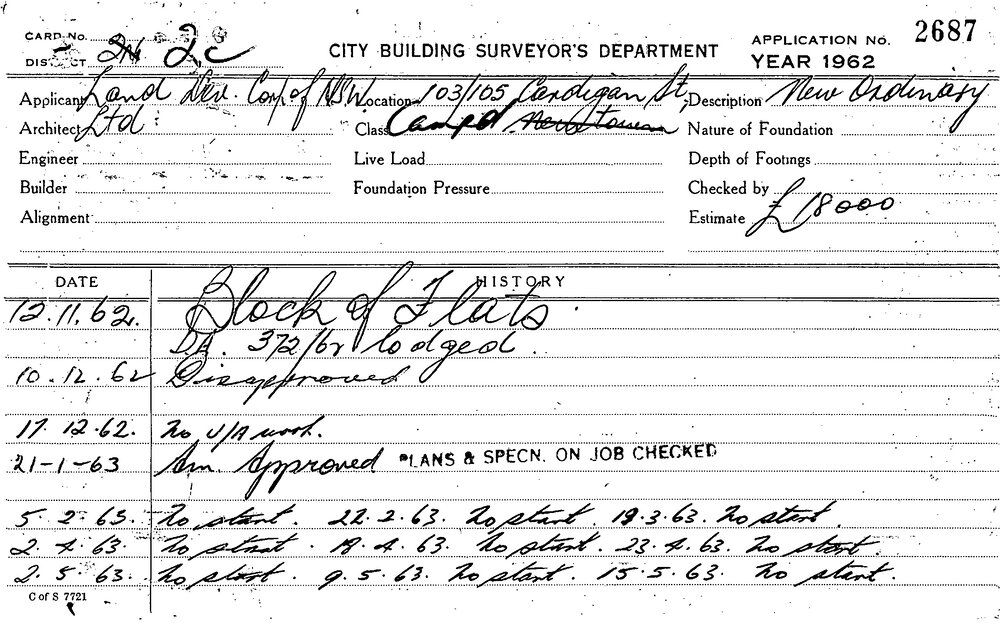 CARD No.
DISTRICT 2c
CITY BUILDING SURVEYOR'S DEPARTMENT
APPLICATION No. 2687
YEAR 1962
Applicant Land Dev. Corp. of NSW Location 103/105 Cardigan St, Description New Ordinary
Architect Ltd Class Camp'd Newtown Nature of Foundation
Engineer Live Load Depth of Footings
Builder Foundation Pressure Checked by
Alignment Estimate £18000
DATE HISTORY
12.11.62. Block of Flats
D.A. 372/62 lodged.
10.12.62 Disapproved
17.12.62. No U/A work.
21-1-63 Am. Approved PLANS & SPECN. ON JOB CHECKED
5.2.63. No start. 22.2.63. No start. 19.3.63. No start.
2.4.63. No start. 18.4.63. No start. 23.4.63. No start.
2.5.63. No start. 9.5.63. No start. 15.5.63. No start.
C of S 7721